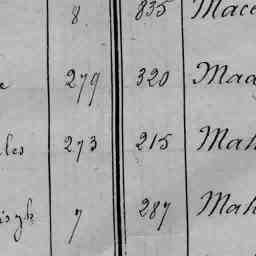 8 835 Mac
279 320 Maa
les 273 215 Mah
7 287 Mah